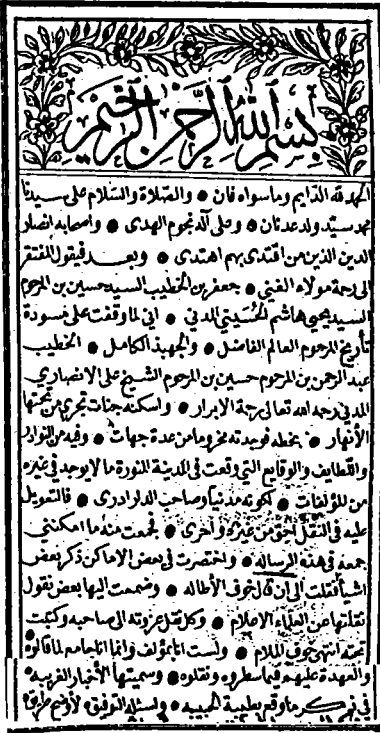 بسم الله الرحمن الرحيم
الحمد لله الدايم وما سواه فان ۞ والصلاة والسلام على سيدنا
محمد سيد ولد عدنان ۞ وعلى آله نجوم الهدى ۞ واصحابه انصار
الدين الذين من اقتدى بهم اهتدى ۞ وبعد فيقول المفتقر
الى رحمة مولاه الغني ۞ جعفر بن الخطيب السيد حسين بن المرحوم
السيد يحيى هاشم الحسيني المدني ۞ اني لما وقفت على مسودة
تاريخ المرحوم العالم الفاضل ۞ والجهبذ الكامل ۞ الخطيب
عبد الرحمن بن المرحوم حسين بن المرحوم الشيخ علي الانصاري
المدني رحمه الله تعالى رحمة الابرار ۞ واسكنه جنات تجري من تحتها
الأنهار ۞ بخطه فوجدته مخروما من عدة جهات ۞ وفيه من النوادر
والقطايف والوقايع التي وقعت في المدينة المنورة ما لا يوجد في غيره
من المؤلفات ۞ لكونه مدنيا وصاحب الدار ادرى ۞ فالتعويل
عليه في النقل احق من غيره وأحرى ۞ فجمعت منه ما امكنني
جمعه في هذه الرساله ۞ واختصرت في بعض الاماكن ذكر بعض
اشيا نقلت الى ان قال خوف الأطاله ۞ وضممت اليها بعض نقول
نقلتها عن العلماء الاعلام ۞ وكل نقل عزوته الى صاحبه وكتبت
تحته انتهى خوف الملام ۞ ولست انا بمؤلف وانما انا جامع لما قالوه
والعهدة عليهم فيما سطروه ونقلوه ۞ وسميتها الأخبار الغريبه
في ذكر ما وقع بطيبة الحبيبه ۞ ولنسئله التوفيق لأوضح طريق